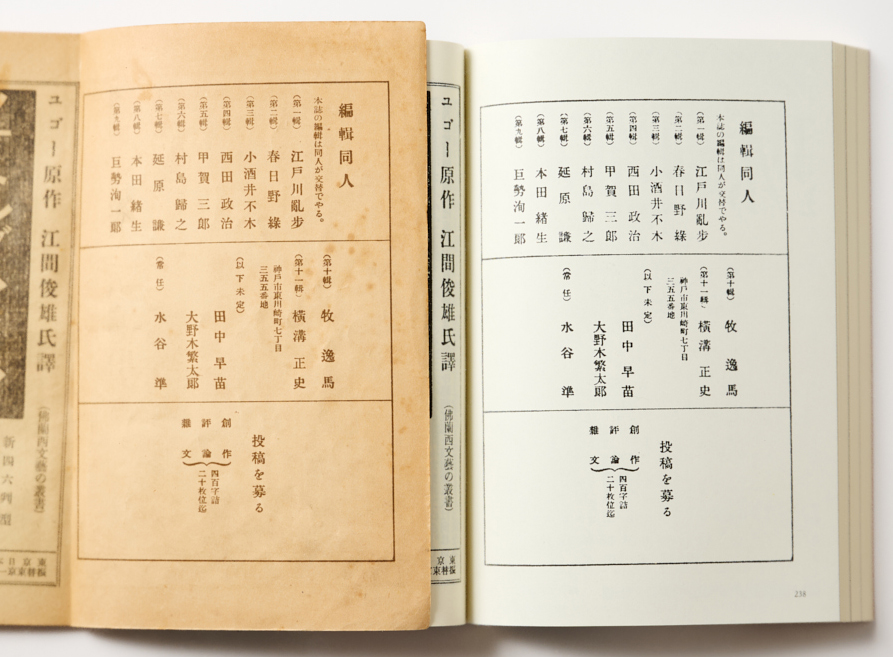 編輯同人
本誌の編輯は同人が交替でやる。
（第一輯）江戸川亂步
（第二輯）春日野綠
（第三輯）小酒井不木
（第四輯）西田政治
（第五輯）甲賀三郎
（第六輯）村島歸之
（第七輯）延原謙
（第八輯）本田緒生
（第九輯）巨勢洵一郎
（第十輯）牧逸馬
（第十一輯）橫溝正史
神戸市東川崎町七丁目
三五五番地
（以下未定）
田中早苗
大野木繁太郎
（常任）水谷準
投稿を募る
創作
評論
雜文
四百字詰
二十枚位迄
ユゴー原作 江間俊雄氏譯
（佛蘭西文藝の叢書）
新四六判
編輯同人
本誌の編輯は同人が交替でやる。
（第一輯）江戸川亂步
（第二輯）春日野綠
（第三輯）小酒井不木
（第四輯）西田政治
（第五輯）甲賀三郎
（第六輯）村島歸之
（第七輯）延原謙
（第八輯）本田緒生
（第九輯）巨勢洵一郎
（第十輯）牧逸馬
（第十一輯）橫溝正史
神戸市東川崎町七丁目
三五五番地
（以下未定）
田中早苗
大野木繁太郎
（常任）水谷準
投稿を募る
創作
評論
雜文
四百字詰
二十枚位迄
ユゴー原作 江間俊雄氏譯
（佛蘭西文藝の叢書）
東京
238